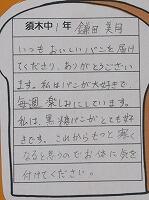 須木中1年 鎌田 美月
いつもおいしいパンを届け
てくださり、ありがとうござい
ます。私はパンが大好きで
毎週 楽しみにしています。
私は、黒糖パンがとても好
きです。これからもっと寒く
なると思うのでお体に気を
付けてください。